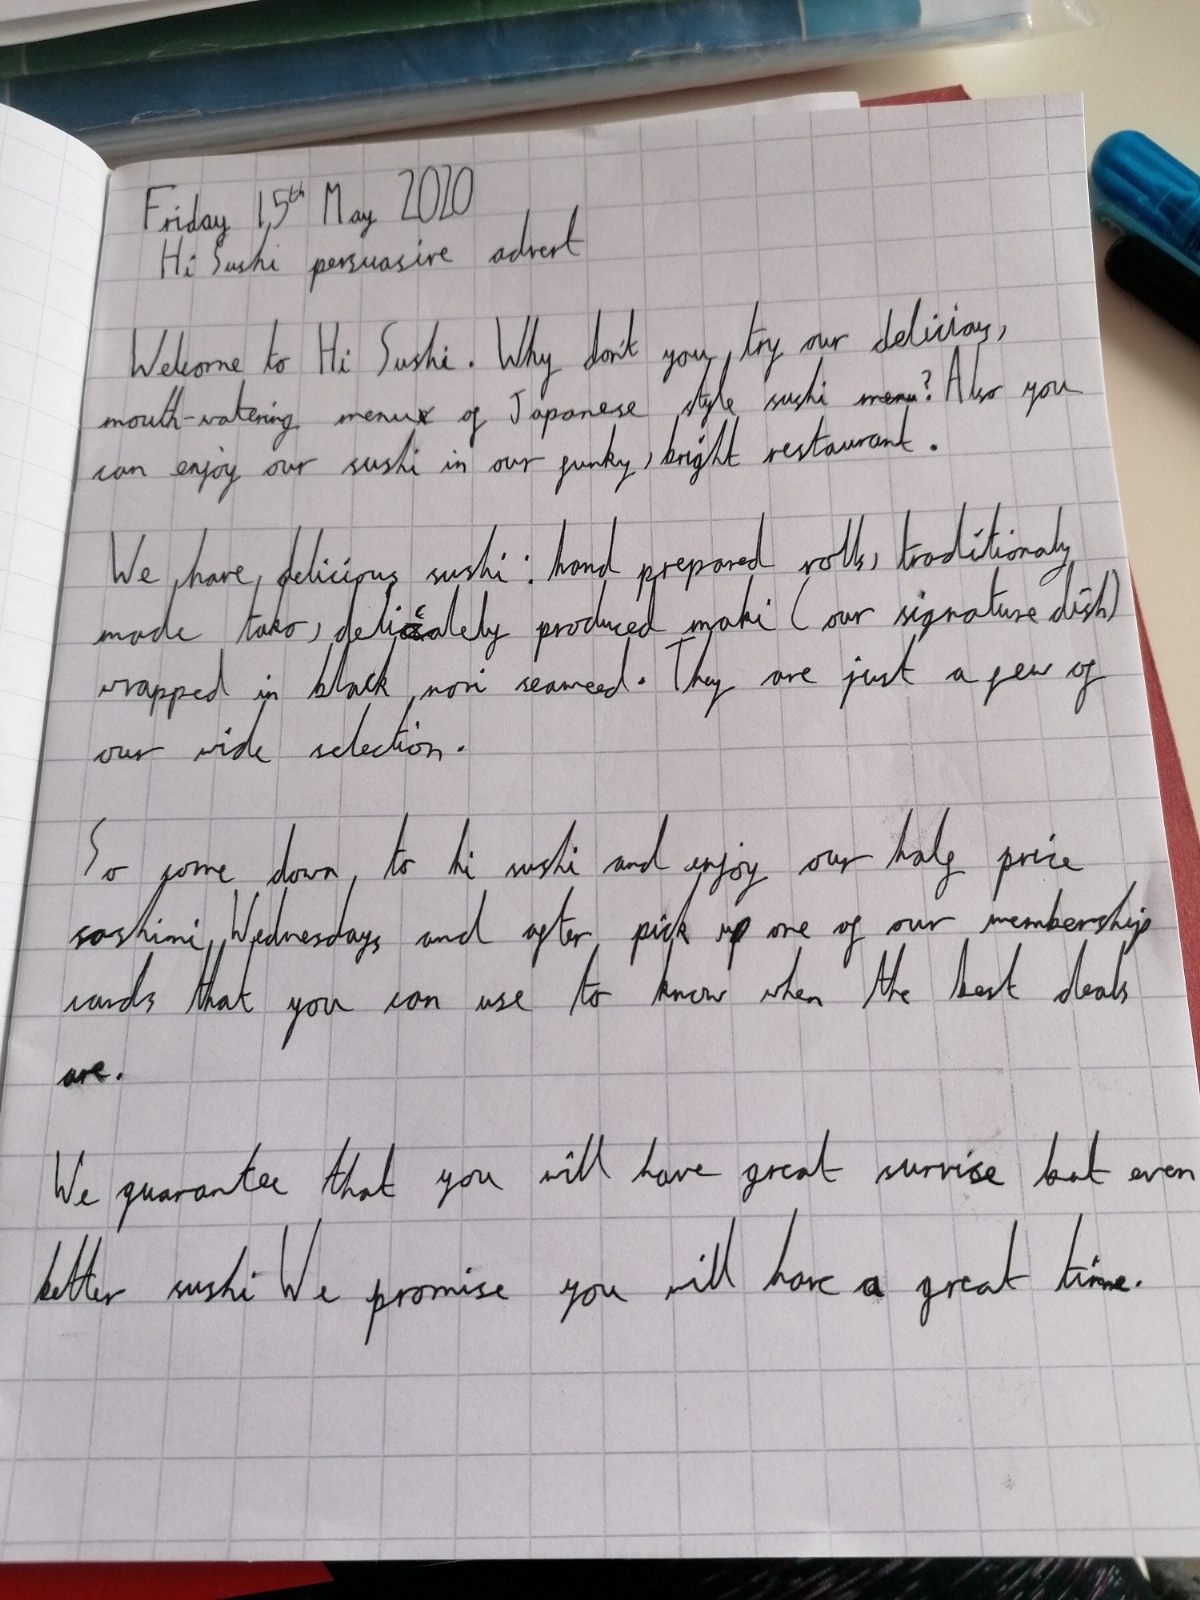 Friday 15th May 2020
Hi Sushi persuasive advert
Welcome to Hi Sushi. Why don't you try our delicious,
mouth-watering menu of Japanese style sushi menu? Also you
can enjoy our sushi in our funky, bright restaurant.
We have delicious sushi: hand prepared rolls, traditionaly
made tako, delicately produced maki (our signature dish)
wrapped in black nori seaweed. They are just a few of
our wide selection.
So come down to hi sushi and enjoy our half price
sashimi Wednesdays and after pick up one of our membership
cards that you can use to know when the best deals
are.
We guarantee that you will have great survise but even
better sushi We promise you will have a great time.